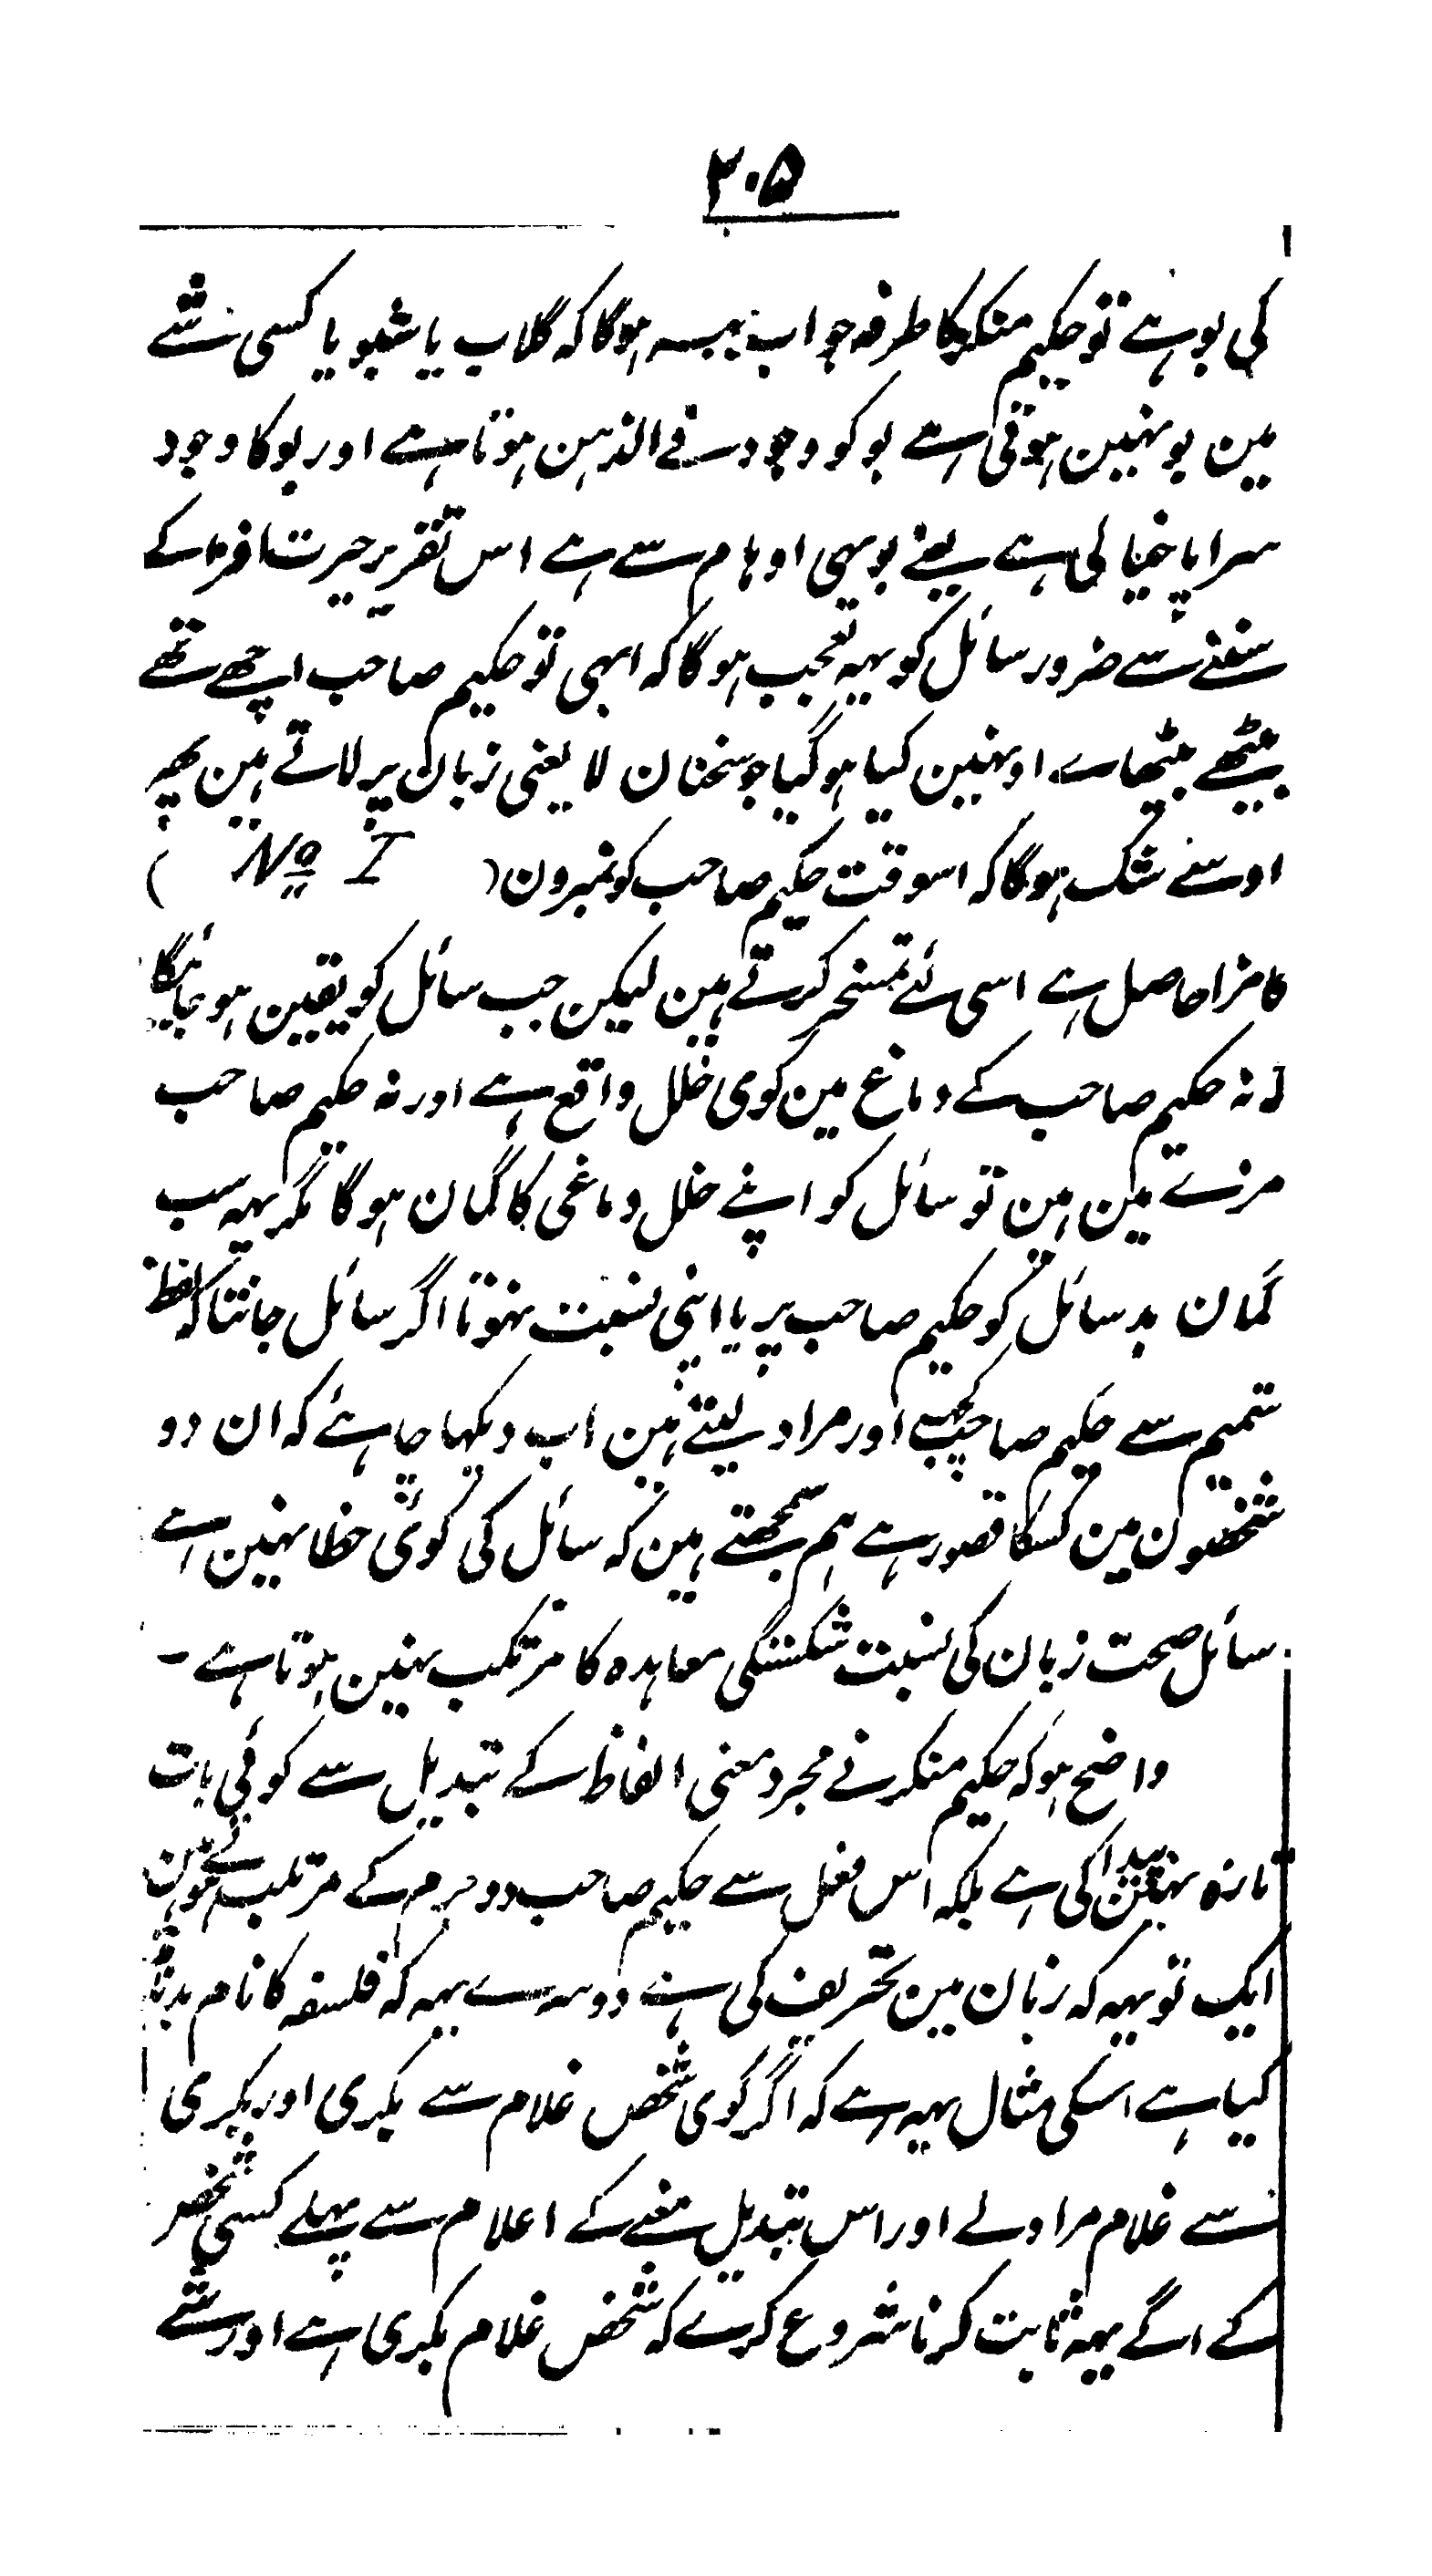 ۲۰۵
کی بو ہے تو حکیم منکر کا طرفہ جواب یہہ ہوگا کہ گلاب یا شبو یا کسی شے
مین بو نہین ہوتی ہے بو کو وجود فے الذہن ہوتا ہے اور بو کا وجود
سراپا خیالی ہے یعنے بو بہی اوہام سے ہے اس تقریر حیرت افزا کے
سننے سے ضرور سائل کو یہہ تعجب ہوگا کہ ابہی تو حکیم صاحب اچھے تھے
بیٹھے بیٹھاے اونہین کیا ہو گیا جو سخنان لا یعنی زبان پر لاتے ہین پھر
اوسے شک ہوگا کہ اسوقت حکیم صاحب کو نمبر ون ( No I )
کا مزا حاصل ہے اسی لئے تمسخر کرتے ہین لیکن جب سائل کو یقین ہو جائیگا
نہ حکیم صاحب کے دماغ مین کوی خلل واقع ہے اور نہ حکیم صاحب
مزے مین ہین تو سائل کو اپنے خلل دماغی کا گمان ہوگا مگر یہہ سب
گمان بد سائل کو حکیم صاحب پر یا اپنی نسبت نہوتا اگر سائل جانتا کہ لفظ
شمیم سے حکیم صاحب کچھ اور مراد لیتے ہین اب دیکہا چاہئے کہ ان دو
شخصون مین کسکا قصور ہے ہم سمجھتے ہین کہ سائل کی کوئی خطا نہین ہے
سائل صحت زبان کی نسبت شکستگی معاہدہ کا مرتکب نہین ہوتا ہے -
واضح ہو کہ حکیم منکر نے مجرد معنی الفاظ کے تبدیل سے کوئی بات
تازہ نہین پیدا کی ہے بلکہ اس فعل سے حکیم صاحب دو جرم کے مرتکب ہوئے ہین
ایک تو یہہ کہ زبان مین تحریف کی ہے دوسرے یہہ کہ فلسفہ کا نام بدنام
کیا ہے اسکی مثال یہہ ہے کہ اگر کوی شخص غلام سے بکری اور بکری
سے غلام مراد لے اور اس تبدیل معنے کے اعلام سے پہلے کسی شخص
کے اگے یہہ ثابت کرنا شروع کرے کہ شخص غلام بکری ہے اور شے